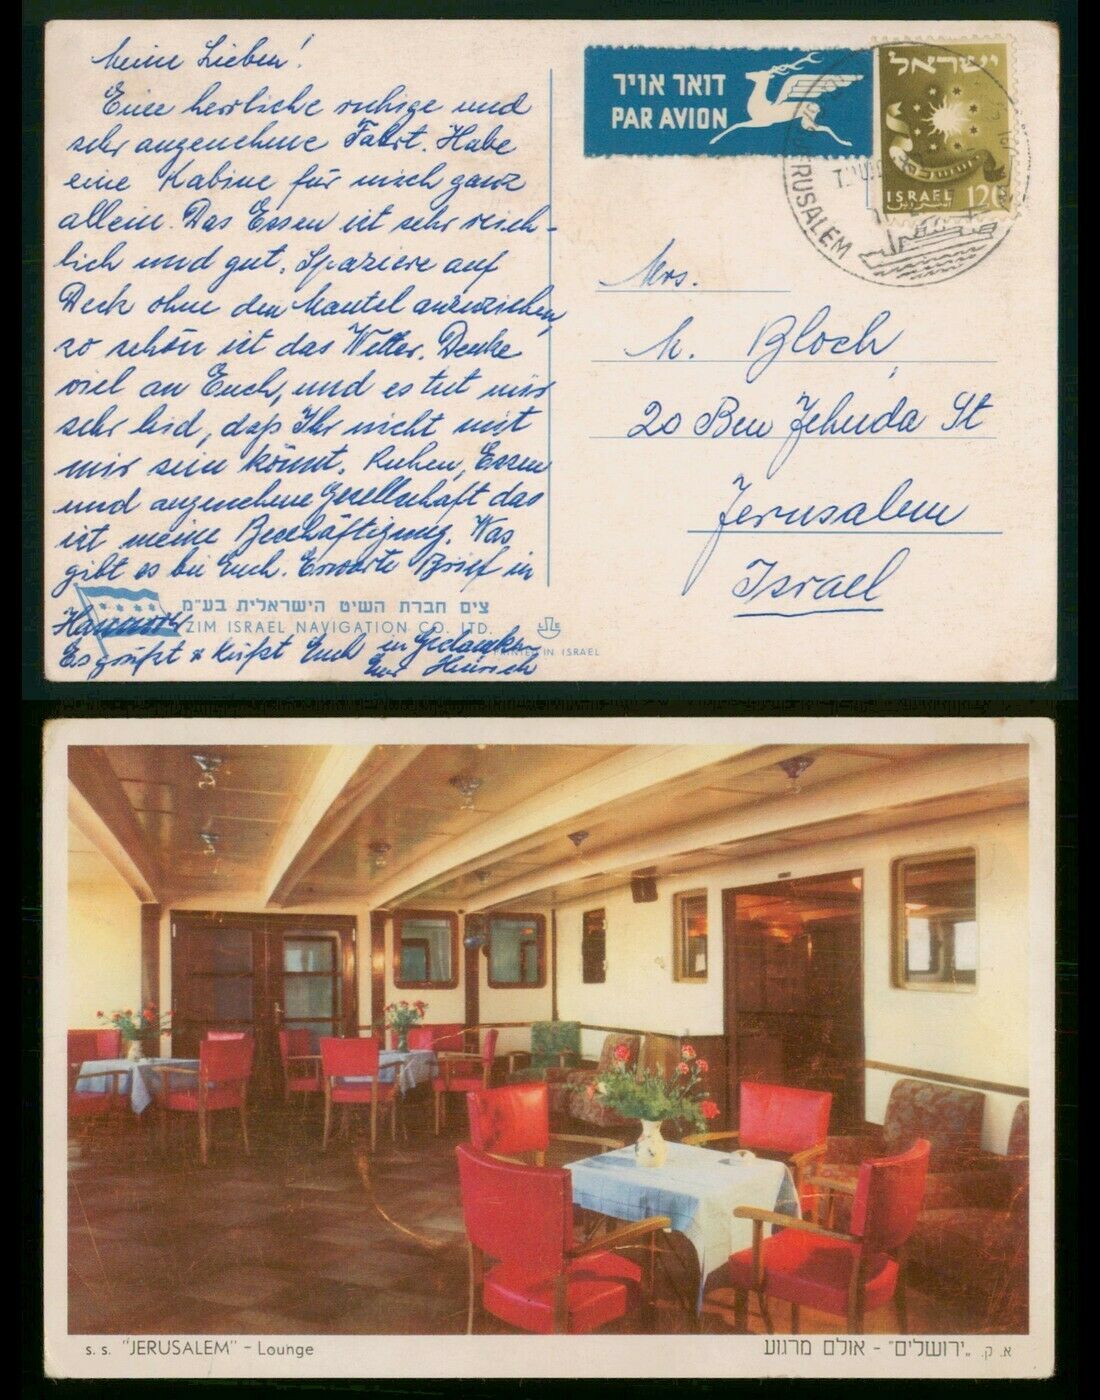 Meine Lieben!
Eine herrliche ruhige und
sehr angenehme Fahrt. Habe
eine Kabine für mich ganz
allein. Das Essen ist sehr reich-
lich und gut. Spaziere auf
Deck ohne den Mantel anzuziehen,
so schön ist das Wetter. Denke
viel an Euch, und es tut mir
sehr leid, daß Ihr nicht mit
mir sein könnt. Ruhen, Essen
und angenehme Gesellschaft das
ist meine Beschäftigung. Was
gibt es bei Euch. Erwarte Brief in
Hannover
Es grüßt & küßt Euch in Gedanken
Euer Heinrich
צים חברת השיט הישראלית בע"מ
ZIM ISRAEL NAVIGATION CO. LTD.
PRINTED IN ISRAEL
דואר אויר
PAR AVION
ישראל
ISRAEL 120
JERUSALEM
Mrs.
M. Bloch,
20 Ben Jehuda St
Jerusalem
Israel
s. s. "JERUSALEM" - Lounge
א. ק. "ירושלים" - אולם מרגוע